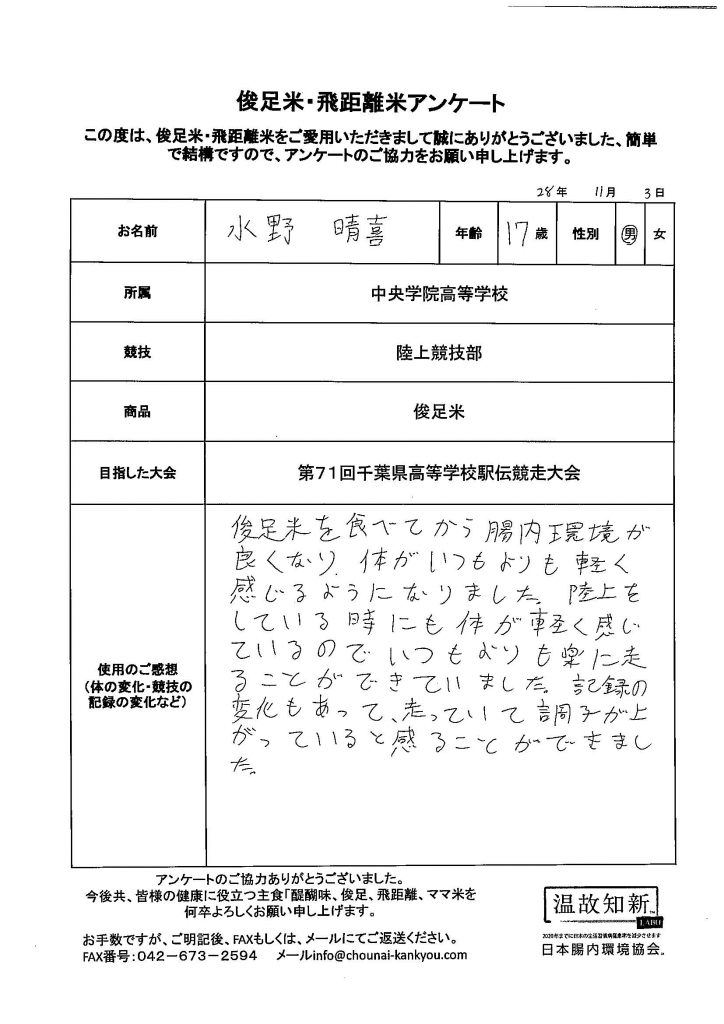 俊足米・飛距離米アンケート
この度は、俊足米・飛距離米をご愛用いただきまして誠にありがとうございました、簡単
で結構ですので、アンケートのご協力をお願い申し上げます。
28年 11月 3日
お名前 水野 晴喜 年齢 17歳 性別 男 女
所属 中央学院高等学校
競技 陸上競技部
商品 俊足米
目指した大会 第71回千葉県高等学校駅伝競走大会
使用のご感想
(体の変化・競技の
記録の変化など)
俊足米を食べてから腸内環境が
良くなり、体がいつもよりも軽く
感じるようになりました。陸上を
している時にも体が軽く感じ
ているのでいつもよりも楽に走
ることができていました。記録の
変化もあって、走っていて調子が上
がっていると感ることができまし
た。
アンケートのご協力ありがとうございました。
今後共、皆様の健康に役立つ主食「醍醐味、俊足、飛距離、ママ米を
何卒よろしくお願い申し上げます。
お手数ですが、ご明記後、FAXもしくは、メールにてご返送ください。
FAX番号:042-673-2594 メールinfo@chounai-kankyou.com
温故知新
LABO
日本腸内環境協会。